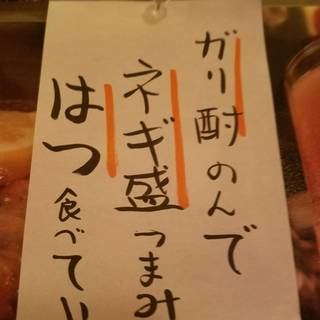 ガリ酎のんで
ネギ盛つまみ
はつ食べて